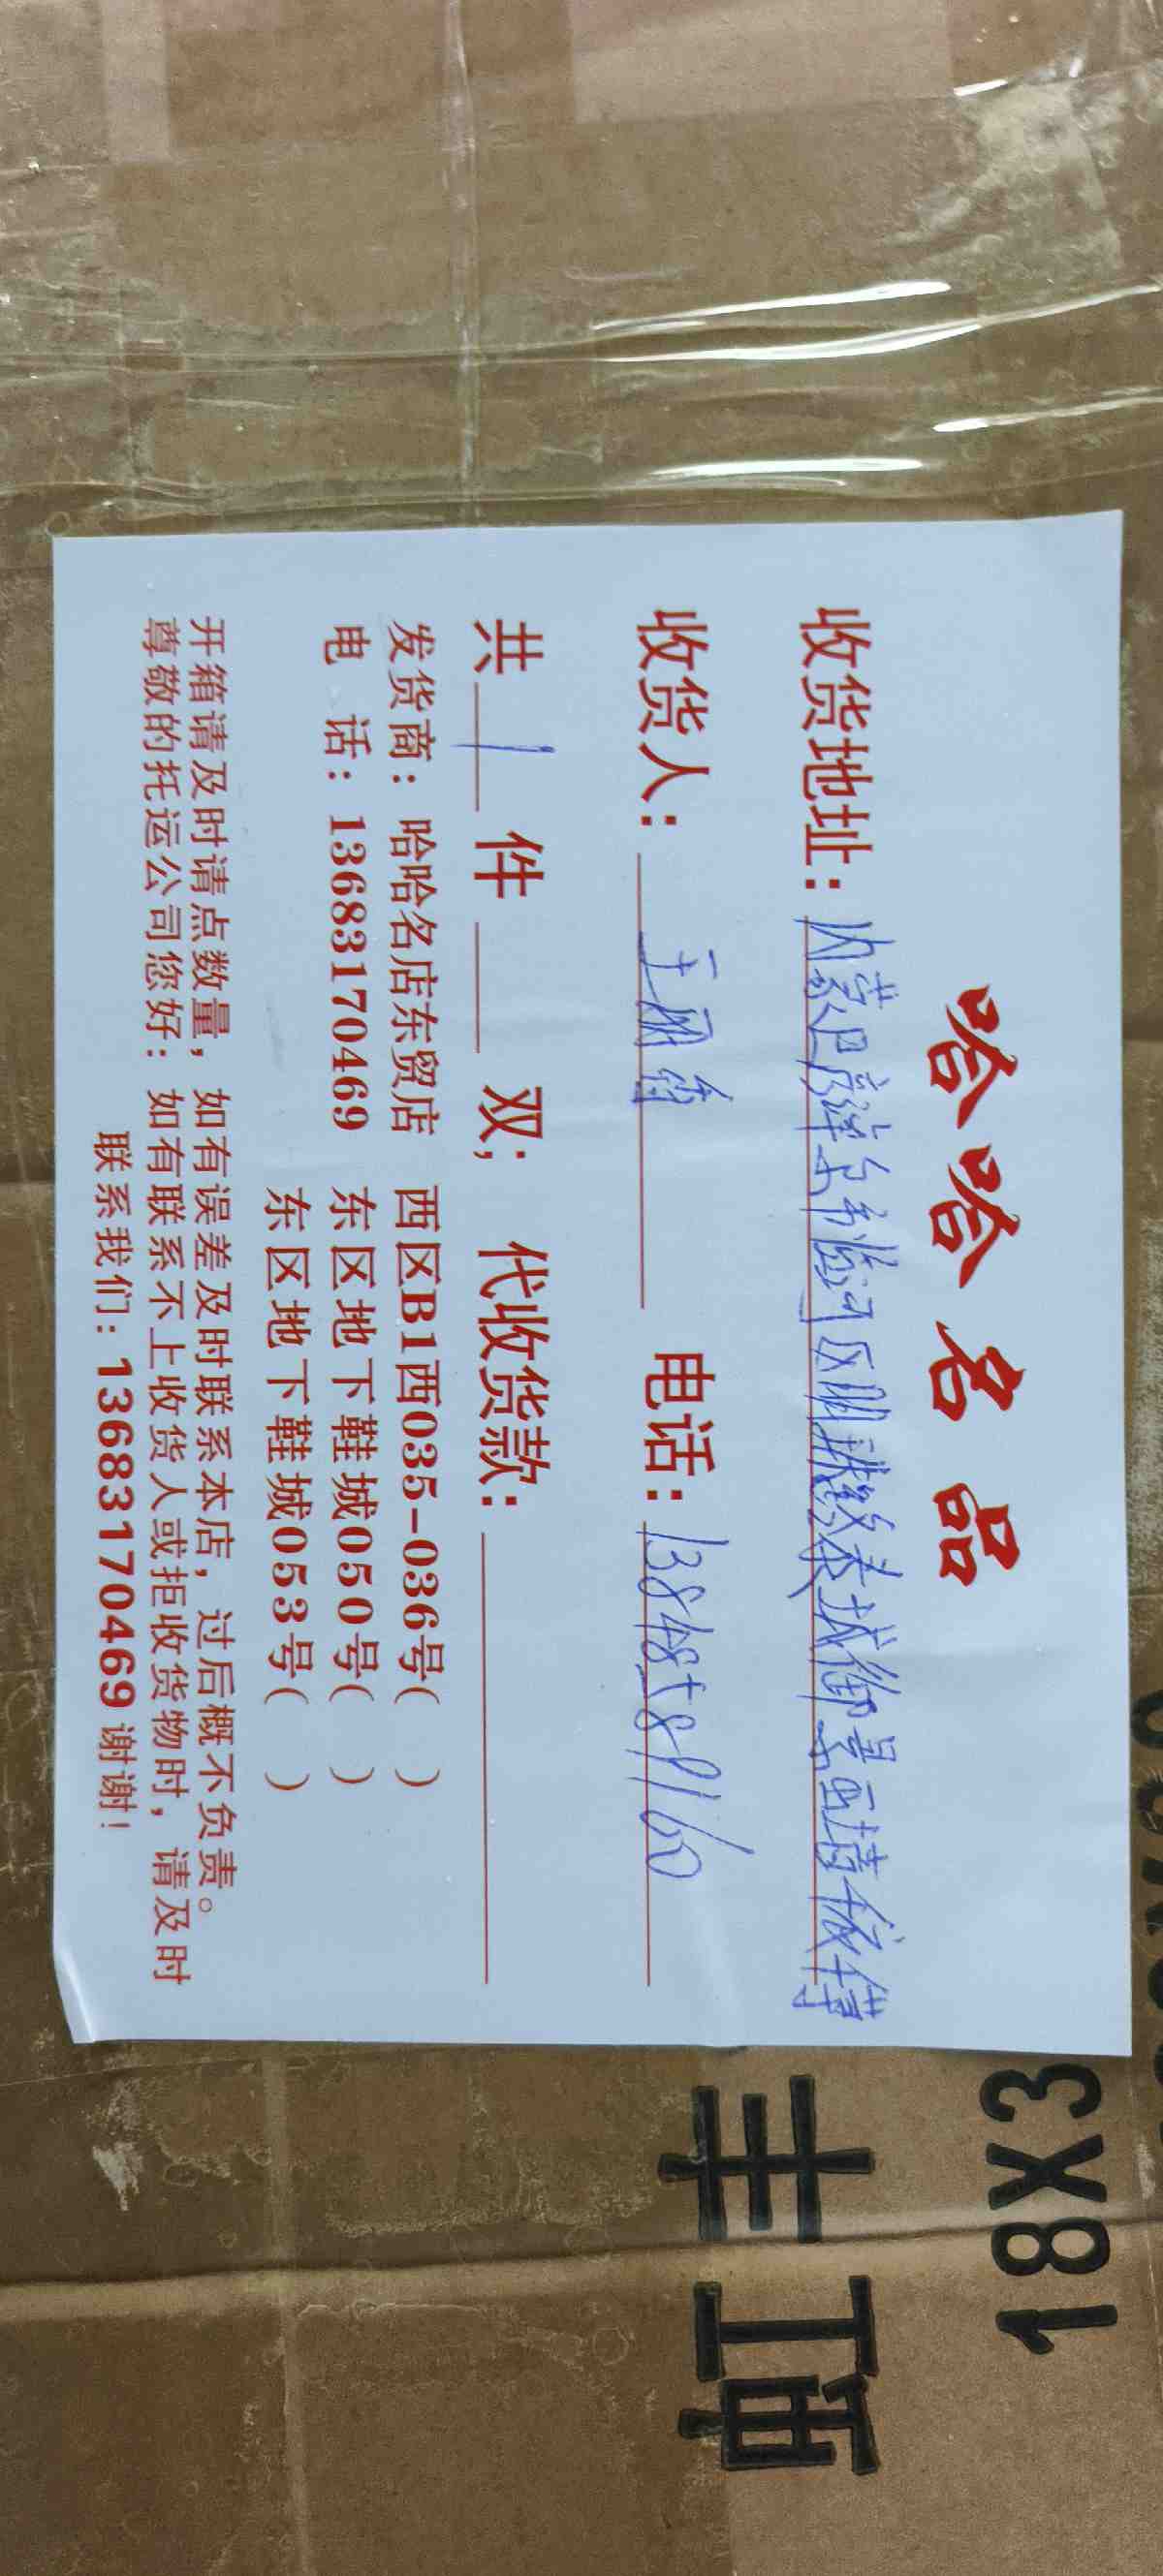 哈哈名品
收货地址：内蒙巴彦淖尔市临河区
收货人：王丽 电话：13848589160
共1件 双； 代收货款：
发货商：哈哈名店东贸店 西区B1西035-036号( )
电 话：13683170469 东区地下鞋城050号( )
东区地下鞋城053号( )
开箱请及时请点数量，如有误差及时联系本店，过后概不负责。
尊敬的托运公司您好：如有联系不上收货人或拒收货物时，请及时
联系我们：13683170469 谢谢！
18X3
丰
虹